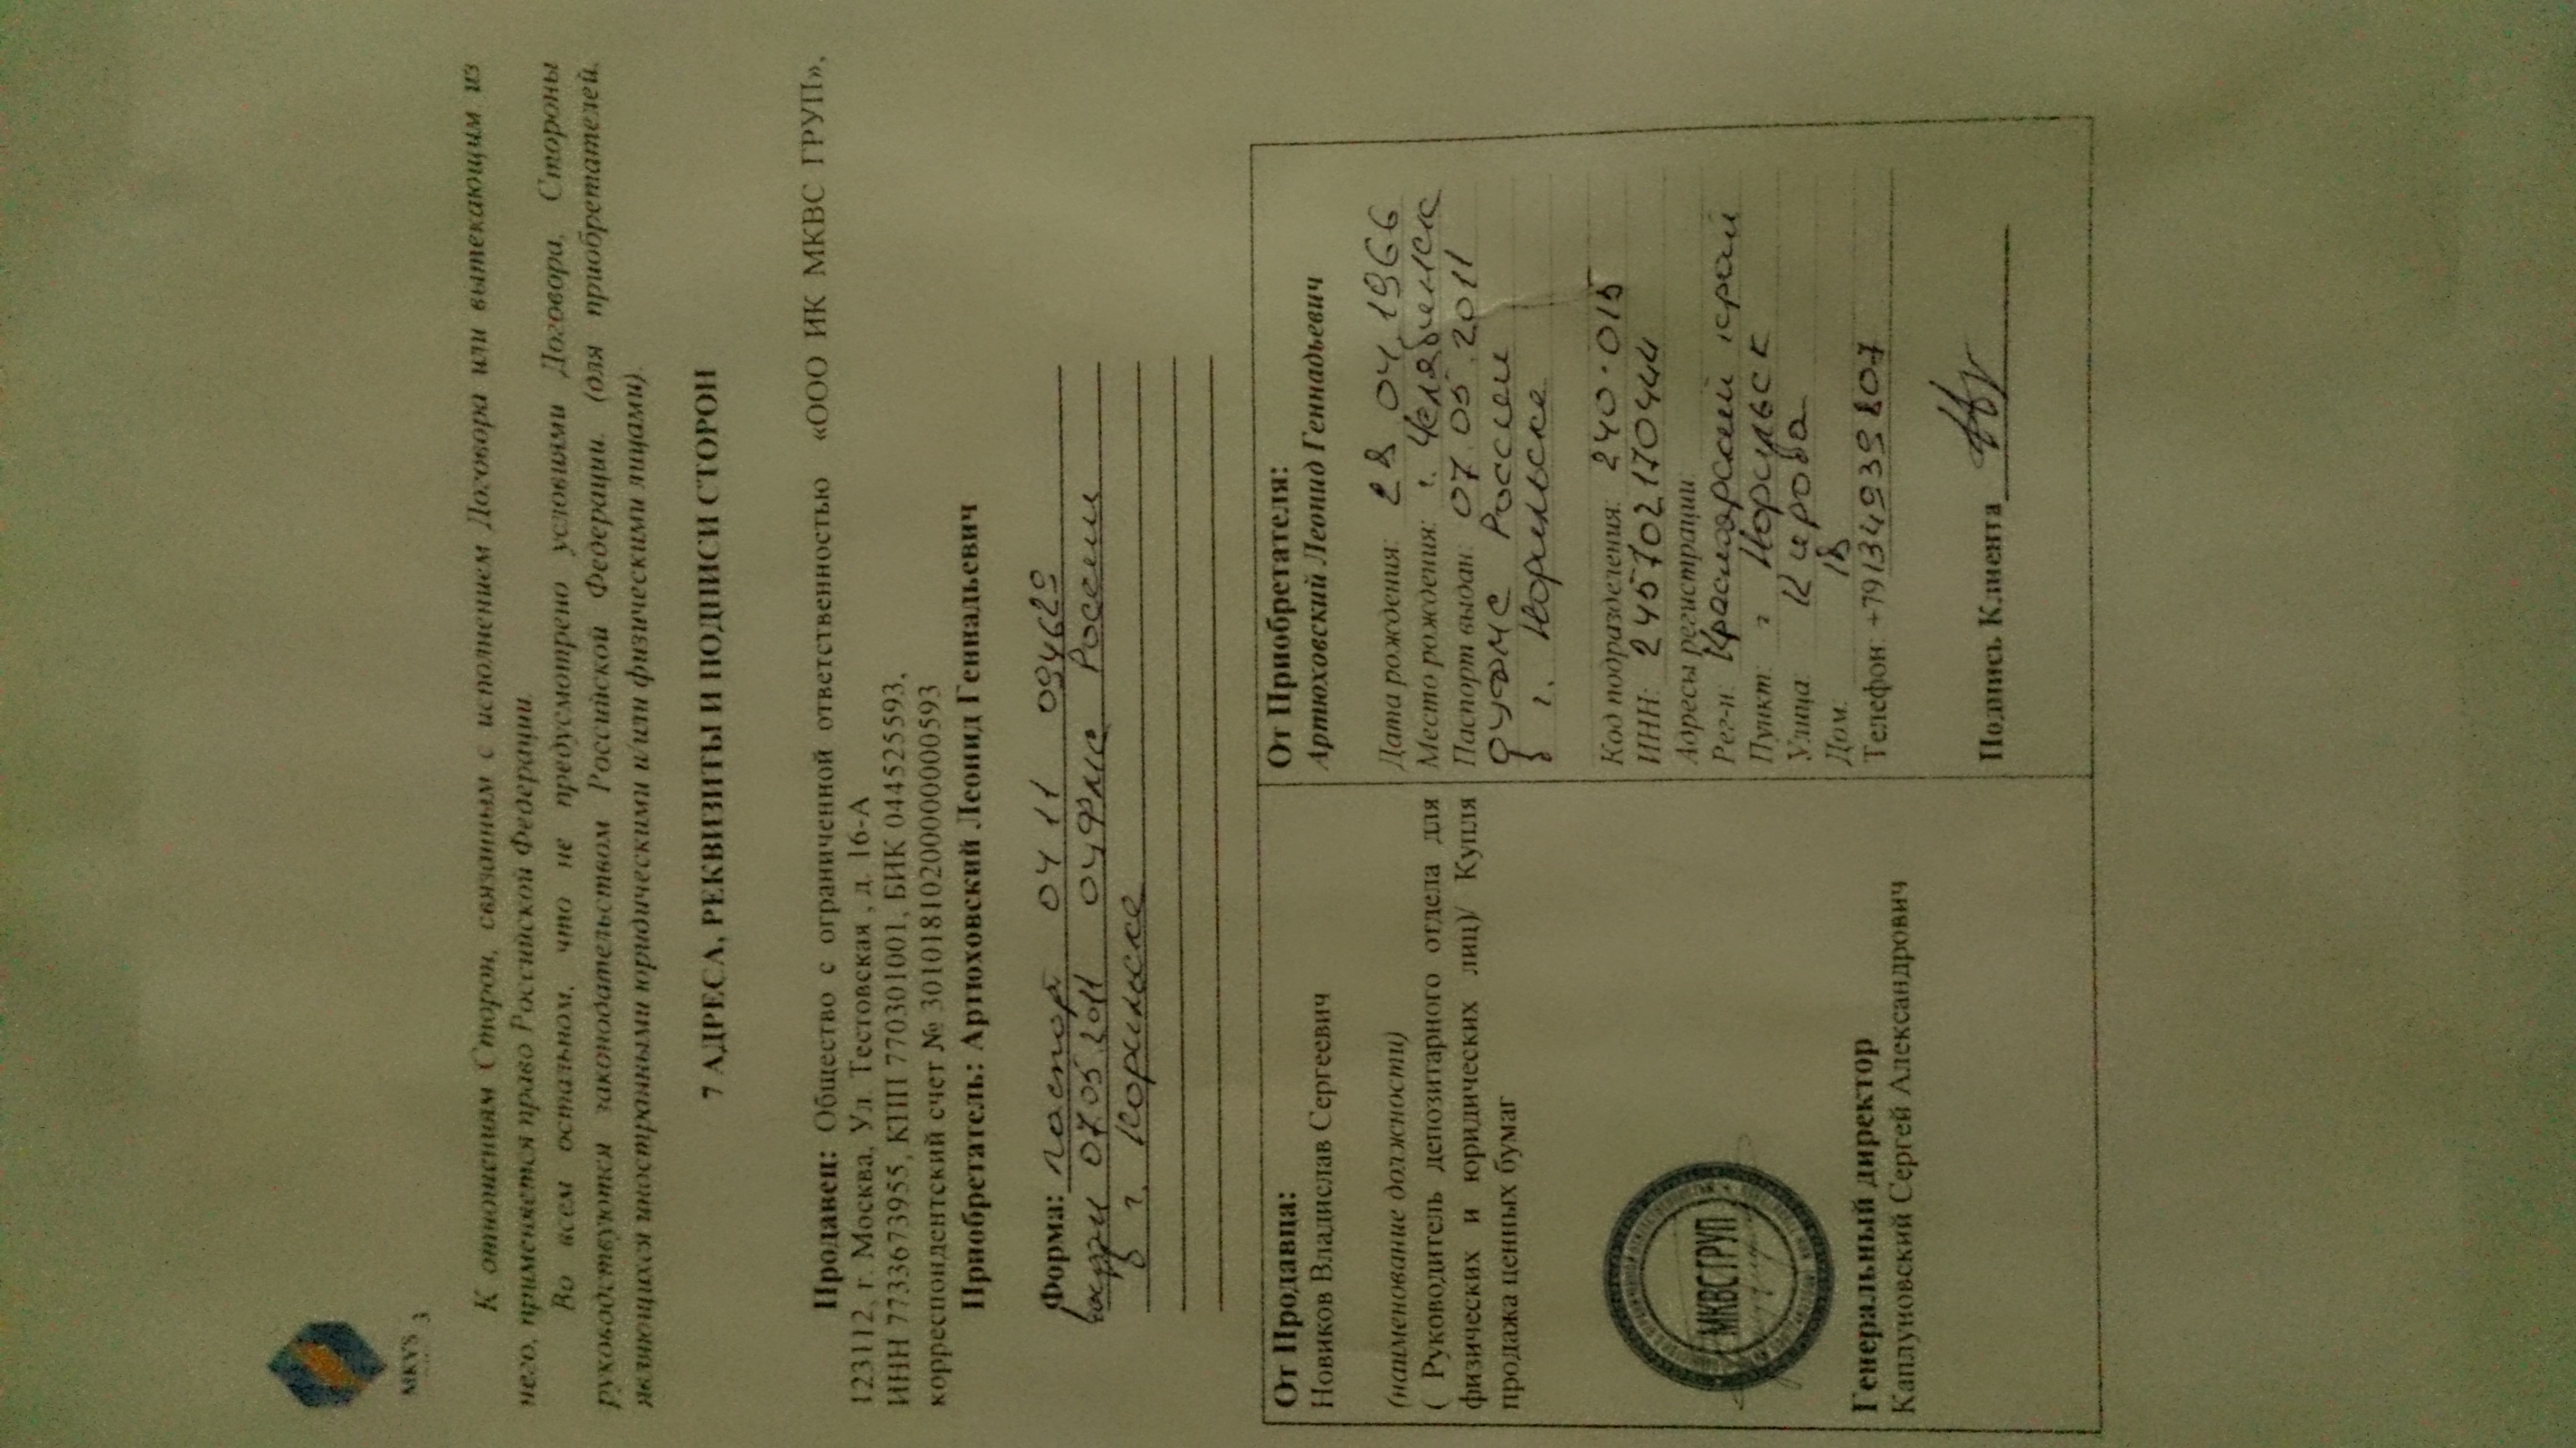 MKVS
3
К отношениям Сторон, связанным с исполнением Договора или вытекающим из
него, применяется право Российской Федерации.
Во всем остальном, что не предусмотрено условиями Договора, Стороны
руководствуются законодательством Российской Федерации. (для приобретателей,
являющихся иностранными юридическими и/или физическими лицами).
7 АДРЕСА, РЕКВИЗИТЫ И ПОДПИСИ СТОРОН
Продавец: Общество с ограниченной ответственностью «ООО ИК МКВС ГРУП»,
123112, г. Москва, Ул. Тестовская , д. 16-А
ИНН 7733673955, КПП 770301001, БИК 044525593,
корреспондентский счет № 30101810200000000593
Приобретатель: Артюховский Леонид Геннадьевич
Форма: паспорт 04 11 094629
выдан 07.05.2011 ОУФМС России
в г. Норильске
От Продавца:
Новиков Владислав Сергеевич
(наименование должности)
( Руководитель депозитарного отдела для
физических и юридических лиц)/ Купля
продажа ценных бумаг
МКВСГРУП
Генеральный директор
Каплуновский Сергей Александрович
От Приобретателя:
Артюховский Леонид Геннадьевич
Дата рождения: 28 04 1966
Место рождения: г. Челябинск
Паспорт выдан: 07.05.2011
ОУФМС России
в г. Норильске
Код подразделения: 240-015
ИНН: 245702170444
Адресы регистрации:
Рег-н: Красноярский край
Пункт: г Норильск
Улица: Кирова
Дом: 18
Телефон: +79134939807
Подпись Клиента